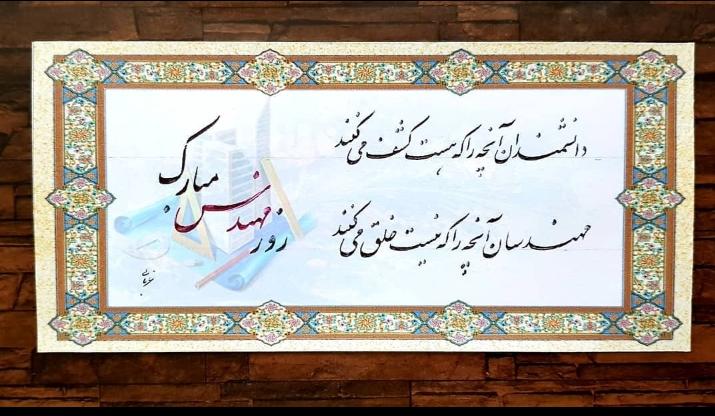 دانشمندان آنچه را که هست کشف می‌کنند
مهندسان آنچه را که نیست خلق می‌کنند
روز مهندس مبارک